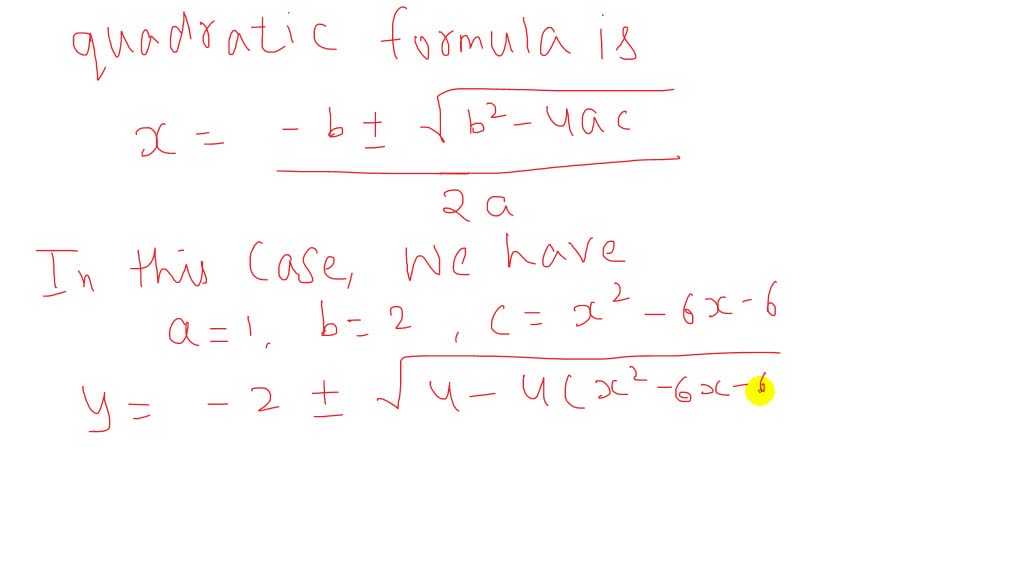 quadratic formula is
x = -b ± √(b² - 4ac) / 2a
In this case, we have
a = 1, b = 2, c = x² - 6x - 6
y = -2 ± √(4 - 4(x² - 6x - 6